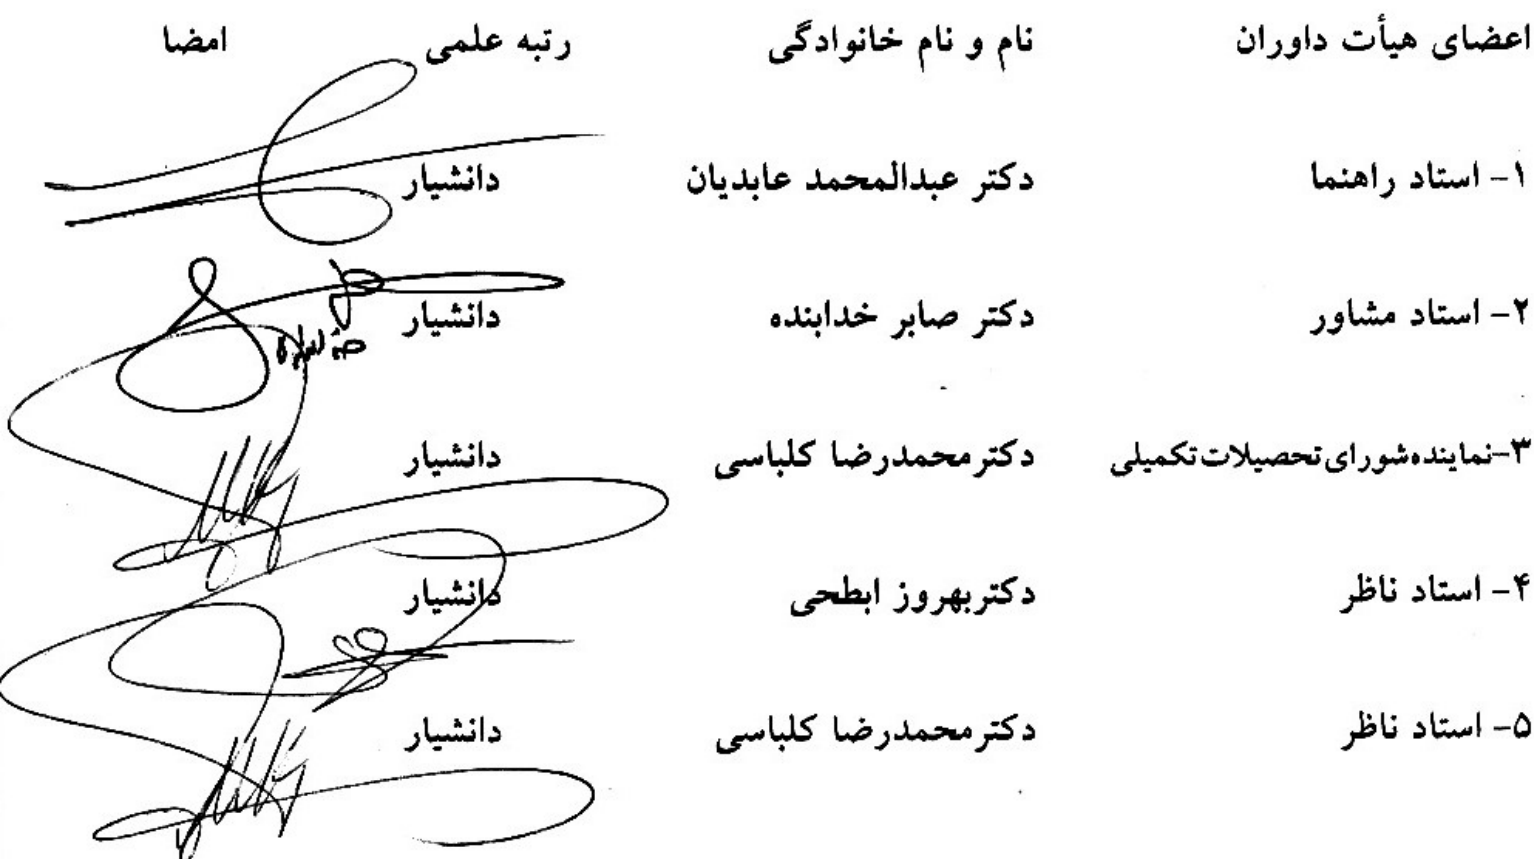 اعضای هیأت داوران نام و نام خانوادگی رتبه علمی امضا
۱- استاد راهنما دکتر عبدالمحمد عابدیان دانشیار
۲- استاد مشاور دکتر صابر خدابنده دانشیار
۳-نماینده‌شورای‌تحصیلات‌تکمیلی دکترمحمدرضا کلباسی دانشیار
۴- استاد ناظر دکتربهروز ابطحی دانشیار
۵- استاد ناظر دکترمحمدرضا کلباسی دانشیار